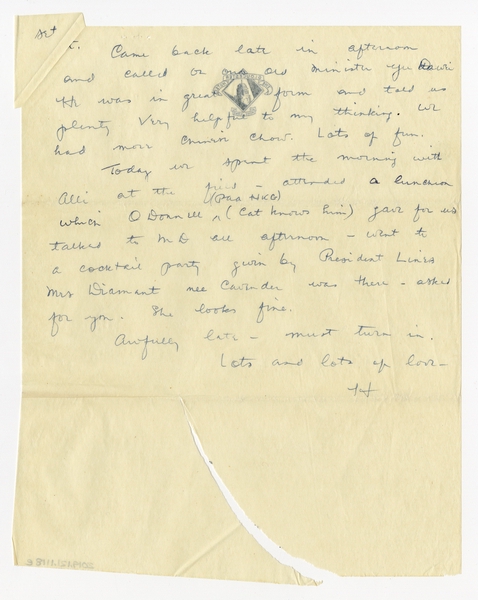 set
t. Came back late in afternoon
and called on our old minister
He was in great form and told us
plenty Very helpful to my thinking. We
had more Chinese chow. Lots of fun.
Today we spent the morning with
Alli at the field - attended a luncheon
which O'Donnell (Cat knows him) gave for us
talked to all afternoon - went to
a cocktail party given by President Lines
Mrs Diamant nee Cavender was there - asked
for you. She looks fine.
Awfully late - must turn in.
Lots and lots of love -
H